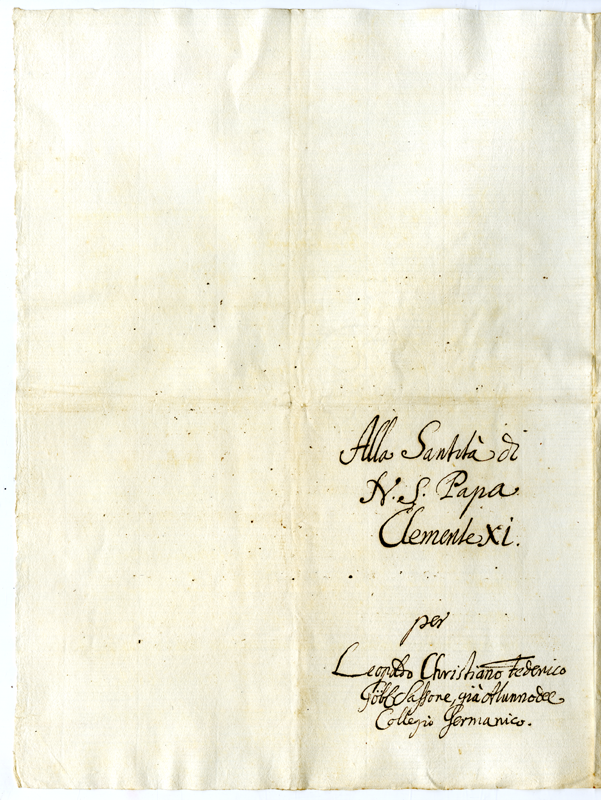 Alla Santità di
N. S. Papa
Clemente XI.
per
Leopoldo Christiano Federico
Sassone, già Alunno del
Collegio Germanico.